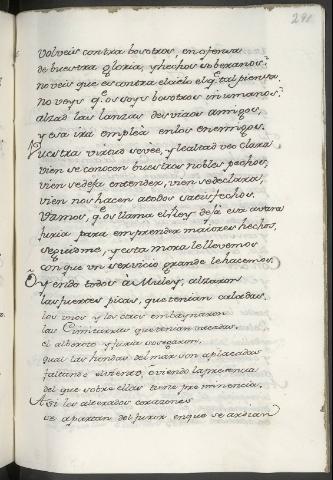 241
volveis contra bosotros, en ofensa
de buestra gloria, y hechos soberanos?
no veis que es contra el cielo el q.e tal piensa,
no veys q.e os soys bosotros inhumanos?
alzad las lanzas de vros amigos,
y esa ira emplea en los enemigos.
Vuestra virtud se vée, y lealtad veo clara
vien se conocen buestros nobles pechos,
vien se deja entender, vien se declara,
vien nos hacen a todos satisfechos.
Vamos, q.e os llama el Rey deja esa avara
furia para emprender maiores hechos,
seguidme, y esta mora le llevemos
con que un servicio grande le hacemos.
Oyendo todos à Muley, alzaron
las fuertes picas, que tenian caladas.
los unos y los otros embaynaron
las Cimitarras que tenian sacadas.
el alboroto y furia sosegaron,
qual las hondas del mar son aplacadas
faltando el viento, oyendo la presencia
del que sobre ellas tiene preminencia.
Asi los alterados corazones
se apartan del furor en que se ardian